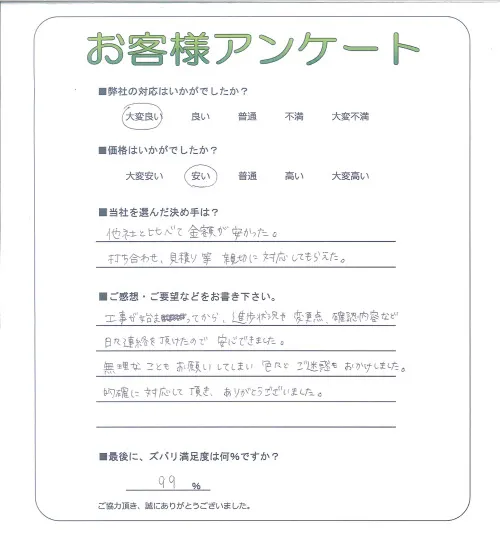 お客様アンケート
■弊社の対応はいかがでしたか？
大変良い 良い 普通 不満 大変不満
■価格はいかがでしたか？
大変安い 安い 普通 高い 大変高い
■当社を選んだ決め手は？
他社と比べて金額が安かった。
打ち合わせ、見積り等 親切に対応してもらえた。
■ご感想・ご要望などをお書き下さい。
工事が始まってから、進歩状況や変更点、確認内容など
日々連絡を頂けたので安心できました。
無理なこともお願いしてしまい色々とご迷惑をおかけしました。
的確に対応して頂き、ありがとうございました。
■最後に、ズバリ満足度は何％ですか？
99 %
ご協力頂き、誠にありがとうございました。